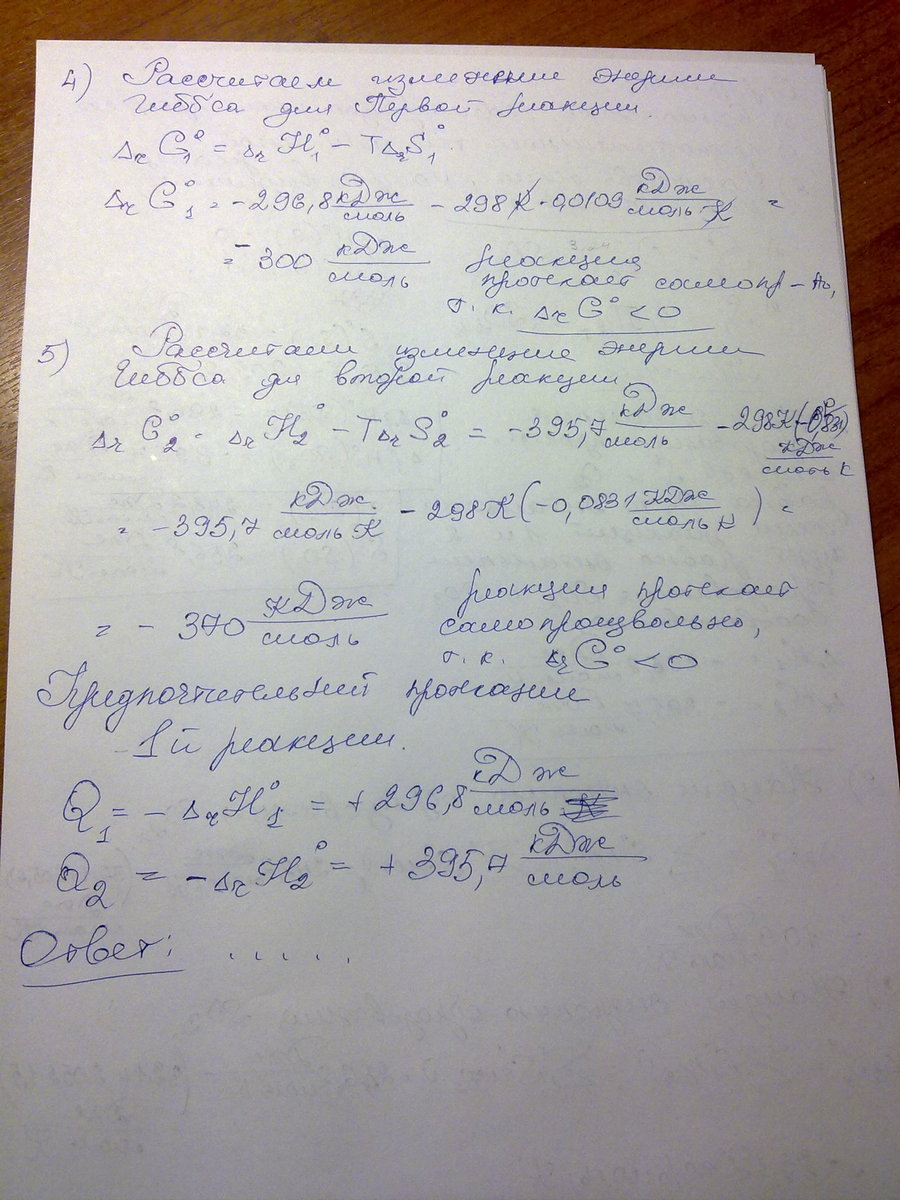 4) Рассчитаем изменение энергии
Гиббса для Первой реакции.
ΔrG₁° = ΔrH₁° – TΔrS₁°.
ΔrG₁° = –296,8 кДж/моль – 298 K · 0,0109 кДж/моль·K =
= –300 кДж/моль реакция
протекает самопр–но,
т. к. ΔrG° < 0
5) Рассчитаем изменение энергии
Гиббса для второй реакции
ΔrG₂° = ΔrH₂° – TΔrS₂° = –395,7 кДж/моль – 298K(–0,0831) кДж/моль K
= –395,7 кДж/моль K – 298K(–0,0831 кДж/моль K) =
= –370 кДж/моль реакция протекает
самопроизвольно,
т. к. ΔrG° < 0
Предпочтительней
– 1й реакции.
Q₁ = – ΔrH₁° = +296,8 кДж/моль
Q₂ = – ΔrH₂° = +395,7 кДж/моль
Ответ: . . . . .